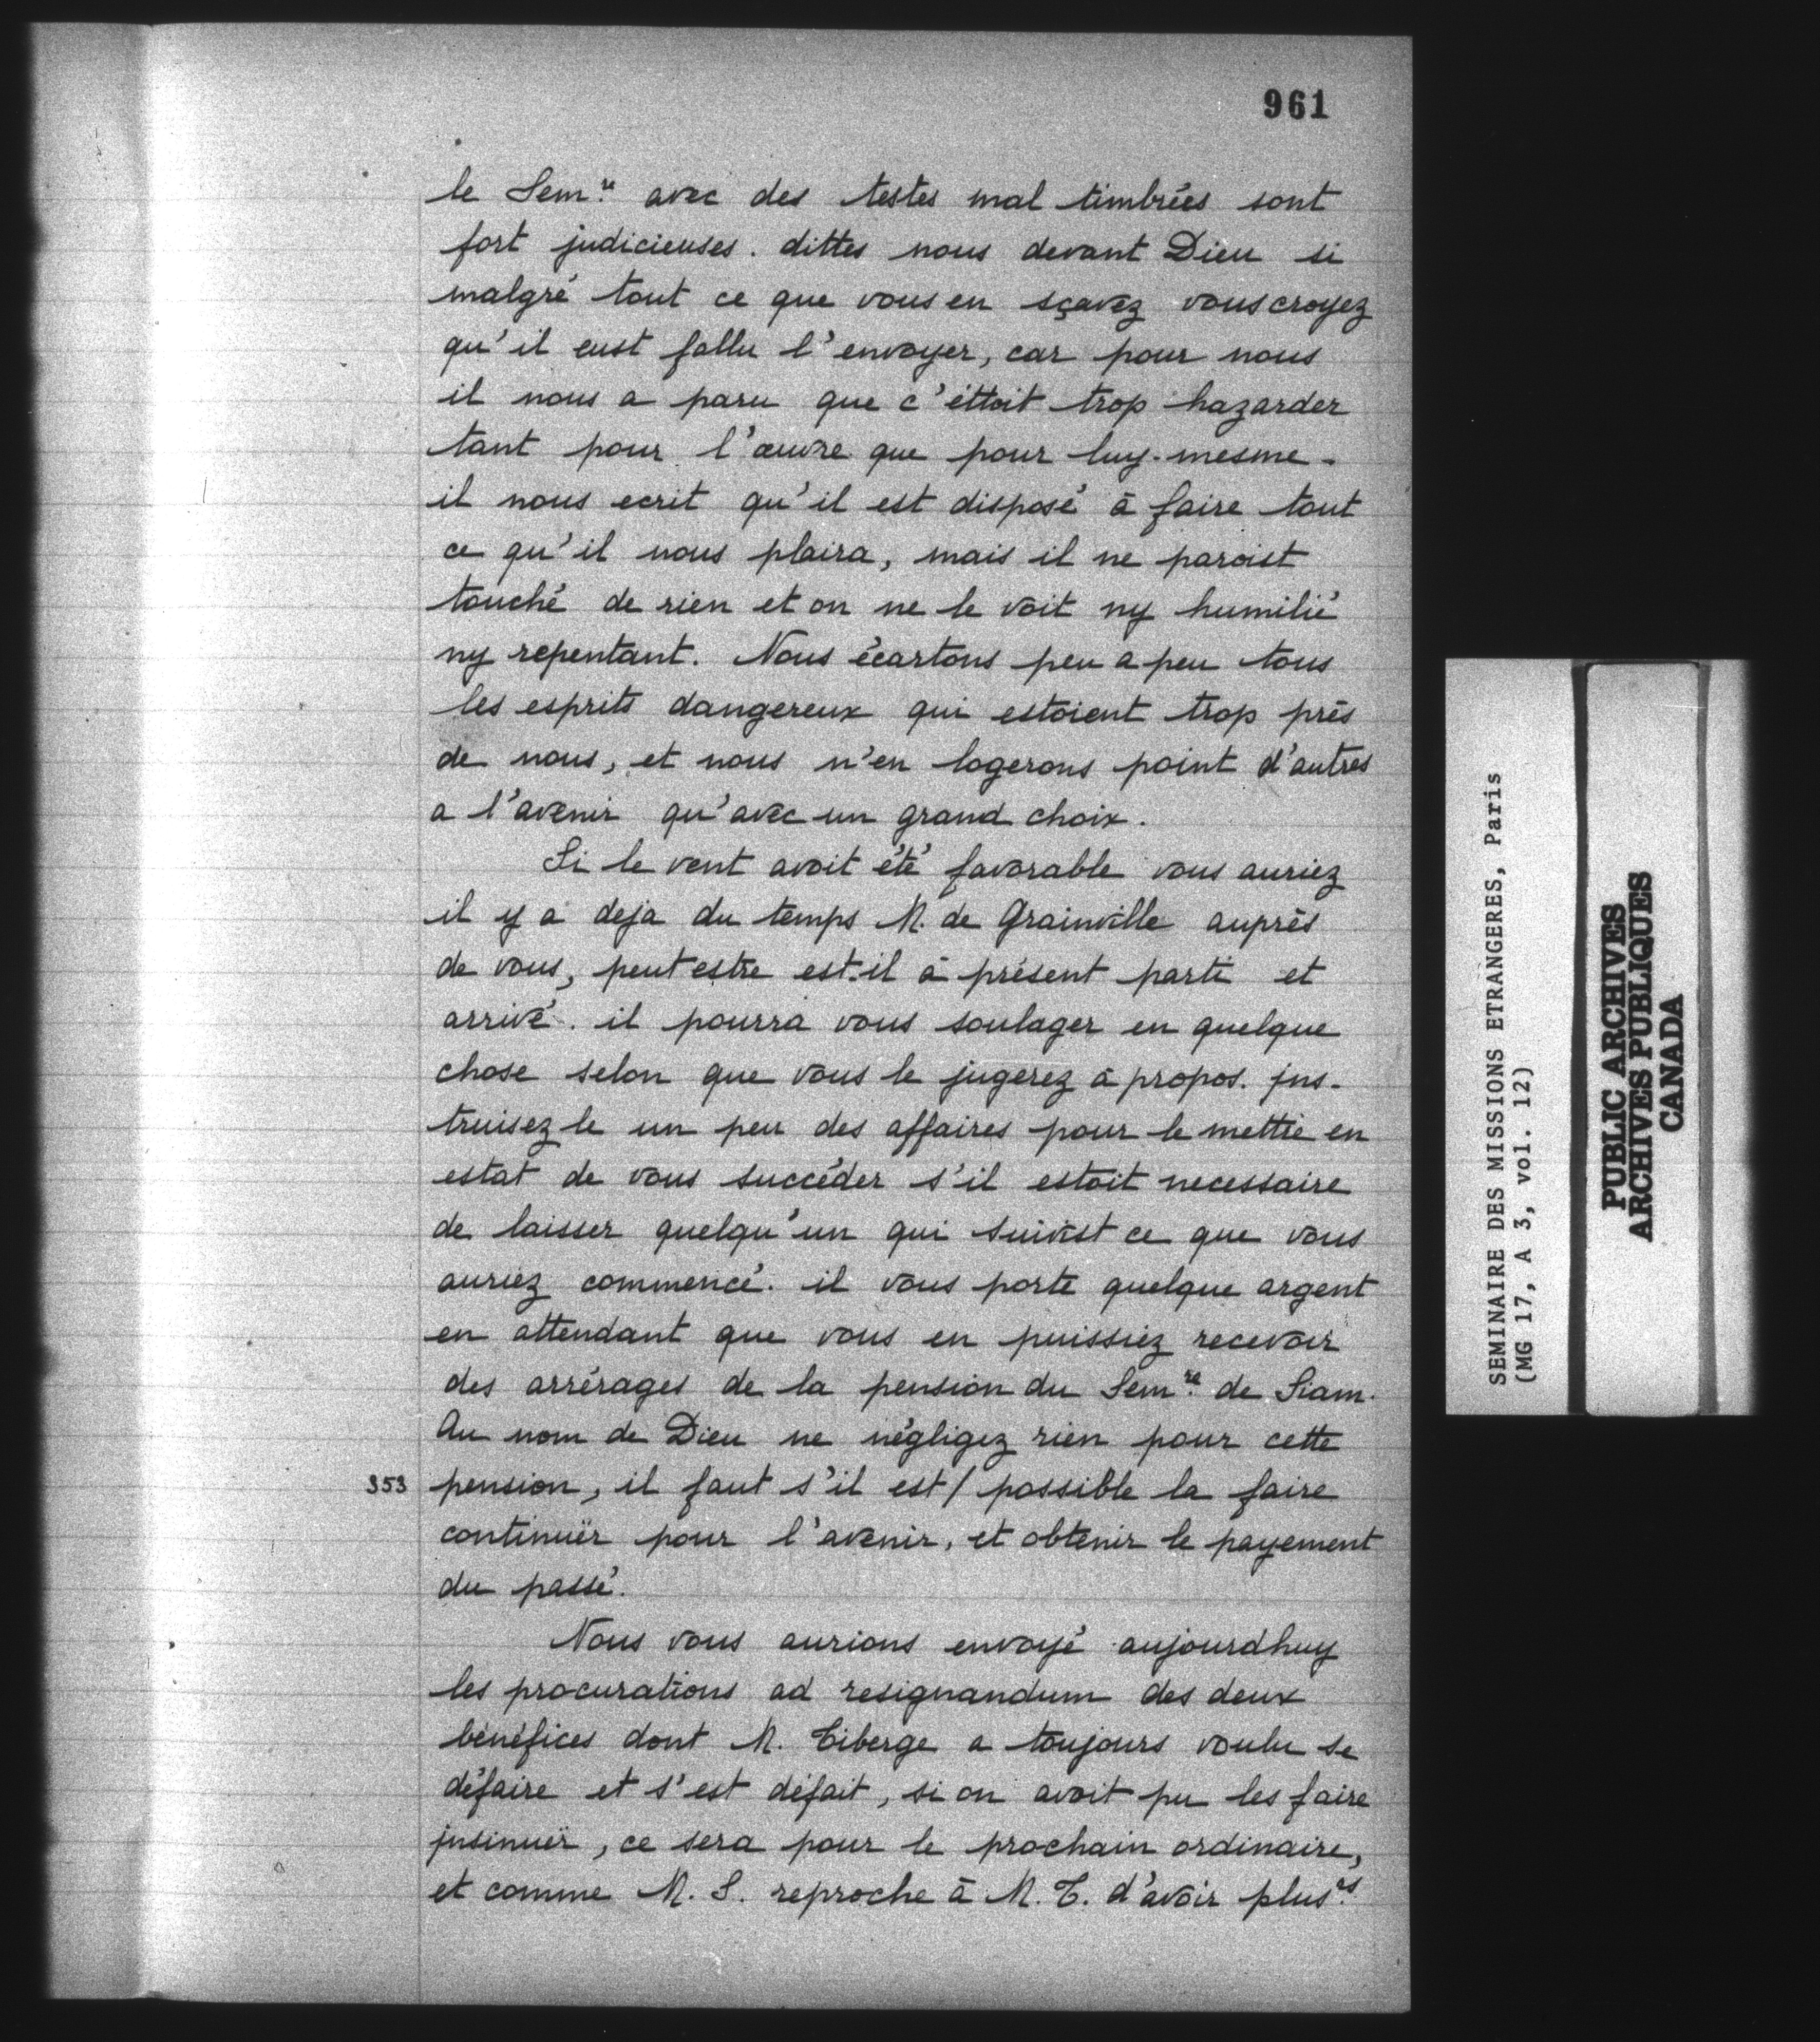 961
le Sem.re avec des testes mal timbrées sont
fort judicieuses. dittes nous devant Dieu si
malgré tout ce que vous en sçavez vous croyez
qu'il eust fallu l'envoyer, car pour nous
il nous a paru que c'éttoit trop hazarder
tant pour l'œuvre que pour luy-mesme.
il nous ecrit qu'il est disposé à faire tout
ce qu'il nous plaira, mais il ne paroist
touché de rien et on ne le voit ny humilié
ny repentant. Nous écartons peu a peu tous
les esprits dangereux qui estoient trop près
de nous, et nous n'en logerons point d'autres
a l'avenir qu'avec un grand choix.
Si le vent avoit été favorable vous auriez
il y a deja du temps M. de Grainville auprès
de vous, peutestre est-il à présent parti et
arrivé. il pourra vous soulager en quelque
chose selon que vous le jugerez à propos. Ins-
truisez le un peu des affaires pour le mettre en
estat de vous succéder s'il estoit necessaire
de laisser quelqu'un qui suivist ce que vous
auriez commencé. il vous porte quelque argent
en attendant que vous en puissiez recevoir
des arrérages de la pension du Sem.re de Siam.
Au nom de Dieu ne négligez rien pour cette
353 pension, il faut s'il est / possible la faire
continuër pour l'avenir, et obtenir le payement
du passé.
Nous vous aurions envoyé aujourdhuy
les procurations ad resignandum des deux
bénéfices dont M. Tiberge a toujours voulu se
défaire et s'est défait, si on avoit pu les faire
insinuër, ce sera pour le prochain ordinaire,
et comme M. S. reproche à M. T. d'avoir plus.rs
SEMINAIRE DES MISSIONS ETRANGERES, Paris
(MG 17, A 3, vol. 12)
PUBLIC ARCHIVES
ARCHIVES PUBLIQUES
CANADA